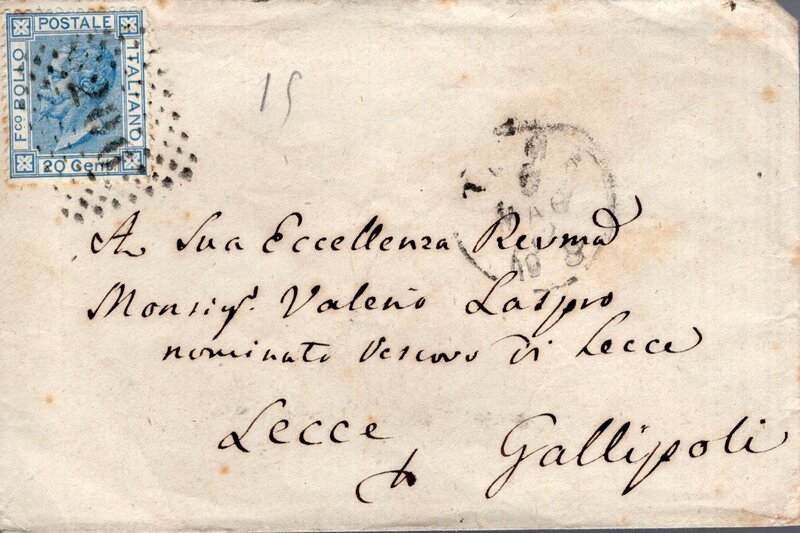 POSTALE
Fco BOLLO
ITALIANO
20 Cent
15
MAG
A Sua Eccellenza Revma
Monsigr. Valerio Laspro
nominato Vescovo di Lecce
Lecce
Gallipoli